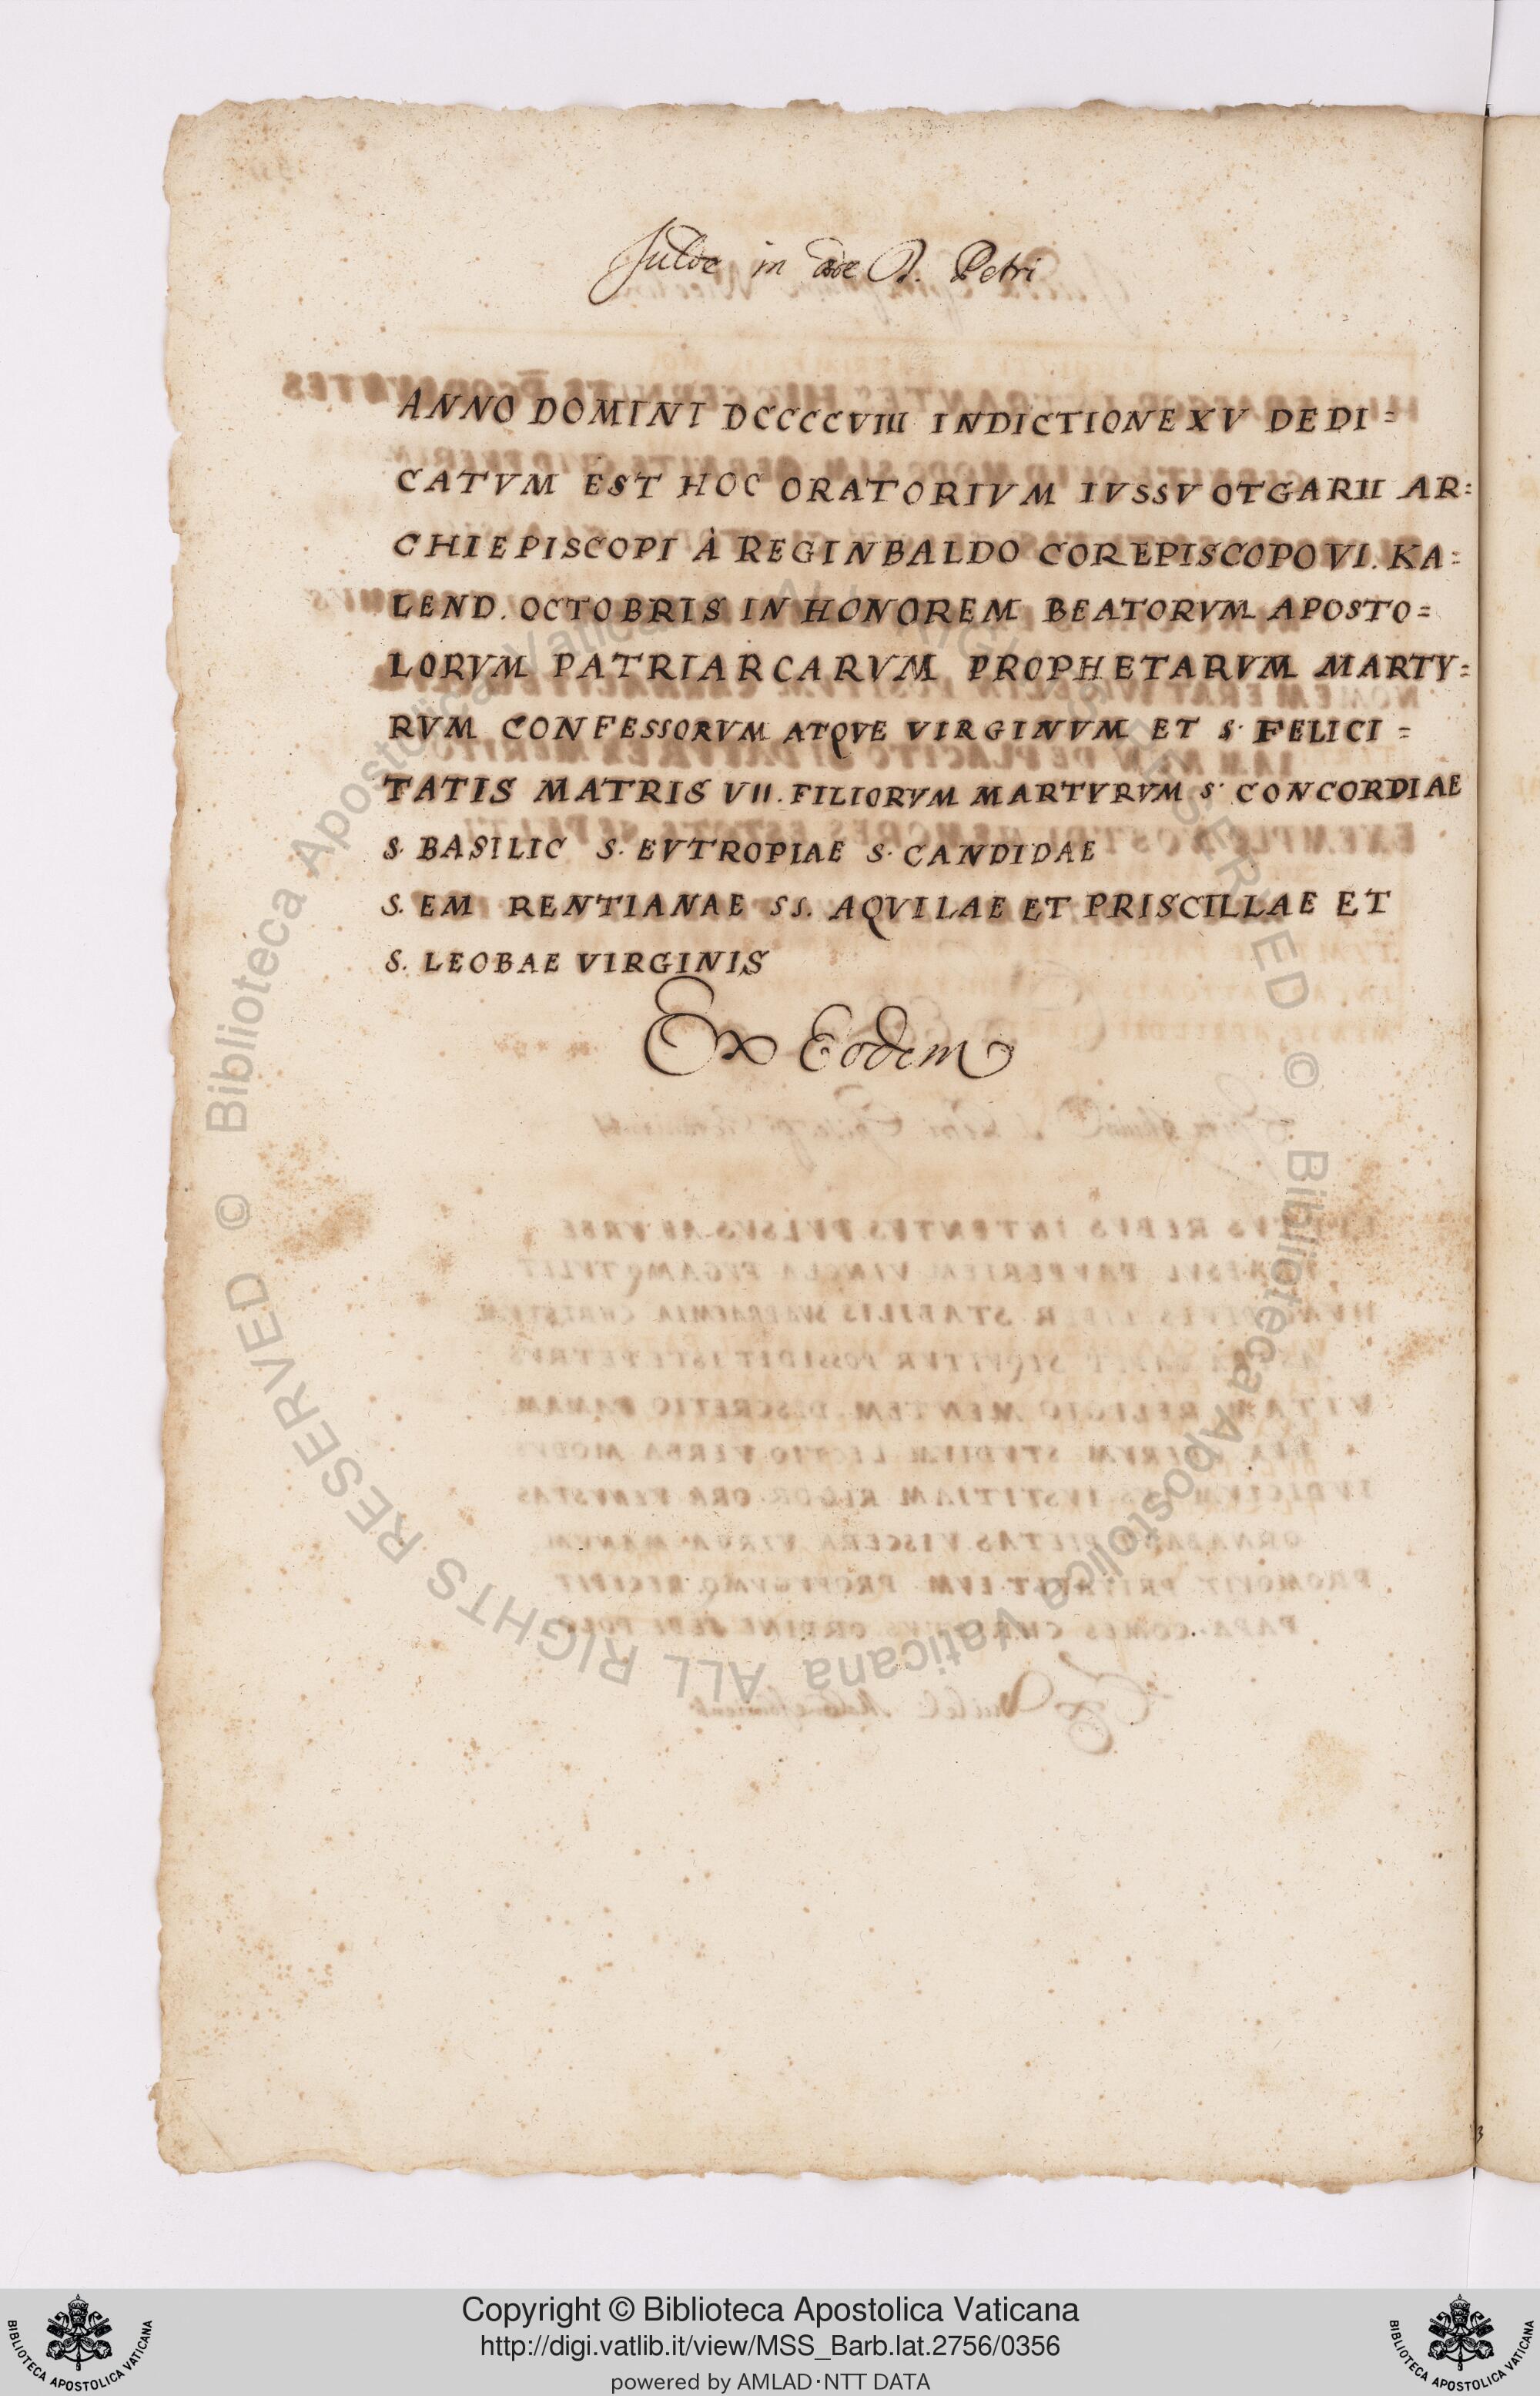 Fuldae in aede B. Petri
ANNO DOMINI DCCCCVIII INDICTIONE XV DEDI=
CATVM EST HOC ORATORIVM IVSSV OTGARII AR=
CHIEPISCOPI À REGINBALDO COREPISCOPO VI. KA=
LEND. OCTOBRIS IN HONOREM BEATORVM APOSTO=
LORVM PATRIARCARVM PROPHETARVM MARTY=
RVM CONFESSORVM ATQVE VIRGINVM ET S. FELICI=
TATIS MATRIS VII. FILIORVM MARTYRVM S. CONCORDIAE
S. BASILIC S. EVTROPIAE S. CANDIDAE
S. EM RENTIANAE SS. AQVILAE ET PRISCILLAE ET
S. LEOBAE VIRGINIS
Ex Eodem
© Biblioteca Apostolica Vaticana ALL RIGHTS RESERVED © Biblioteca Apostolica Vaticana ALL RIGHTS RESERVED
Copyright © Biblioteca Apostolica Vaticana
http://digi.vatlib.it/view/MSS_Barb.lat.2756/0356
powered by AMLAD·NTT DATA
BIBLIOTECA APOSTOLICA VATICANA
BIBLIOTECA APOSTOLICA VATICANA